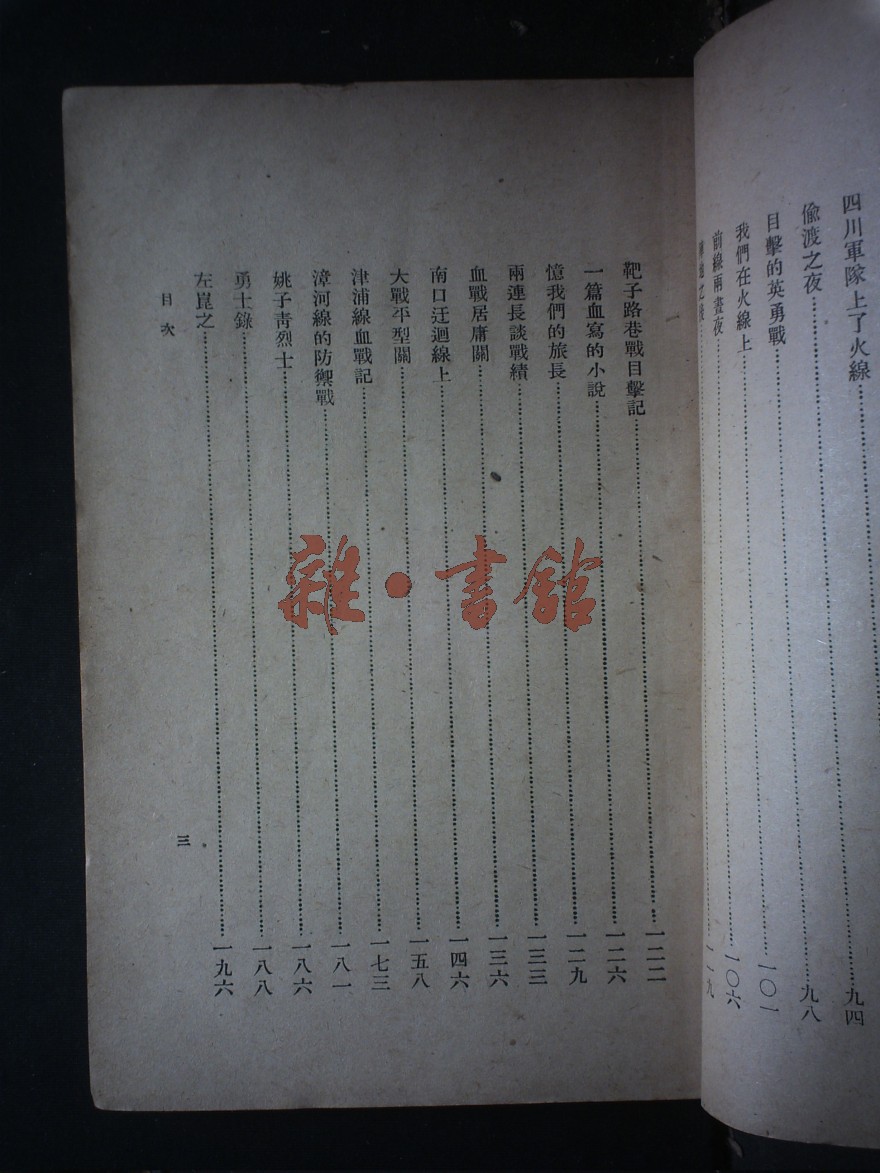 四川軍隊上了火線……九四
偷渡之夜……九八
目擊的英勇戰……一〇一
我們在火線上……一〇六
前線兩晝夜……一一九
靶子路巷戰目擊記……一二二
一篇血寫的小說……一二六
憶我們的旅長……一二九
兩連長談戰績……一三三
血戰居庸關……一三六
南口迂迴線上……一四六
大戰平型關……一五八
津浦線血戰記……一七三
漳河線的防禦戰……一八一
姚子靑烈士……一八六
勇士錄……一八八
左崑之……一九六
目次
三
雜·書館